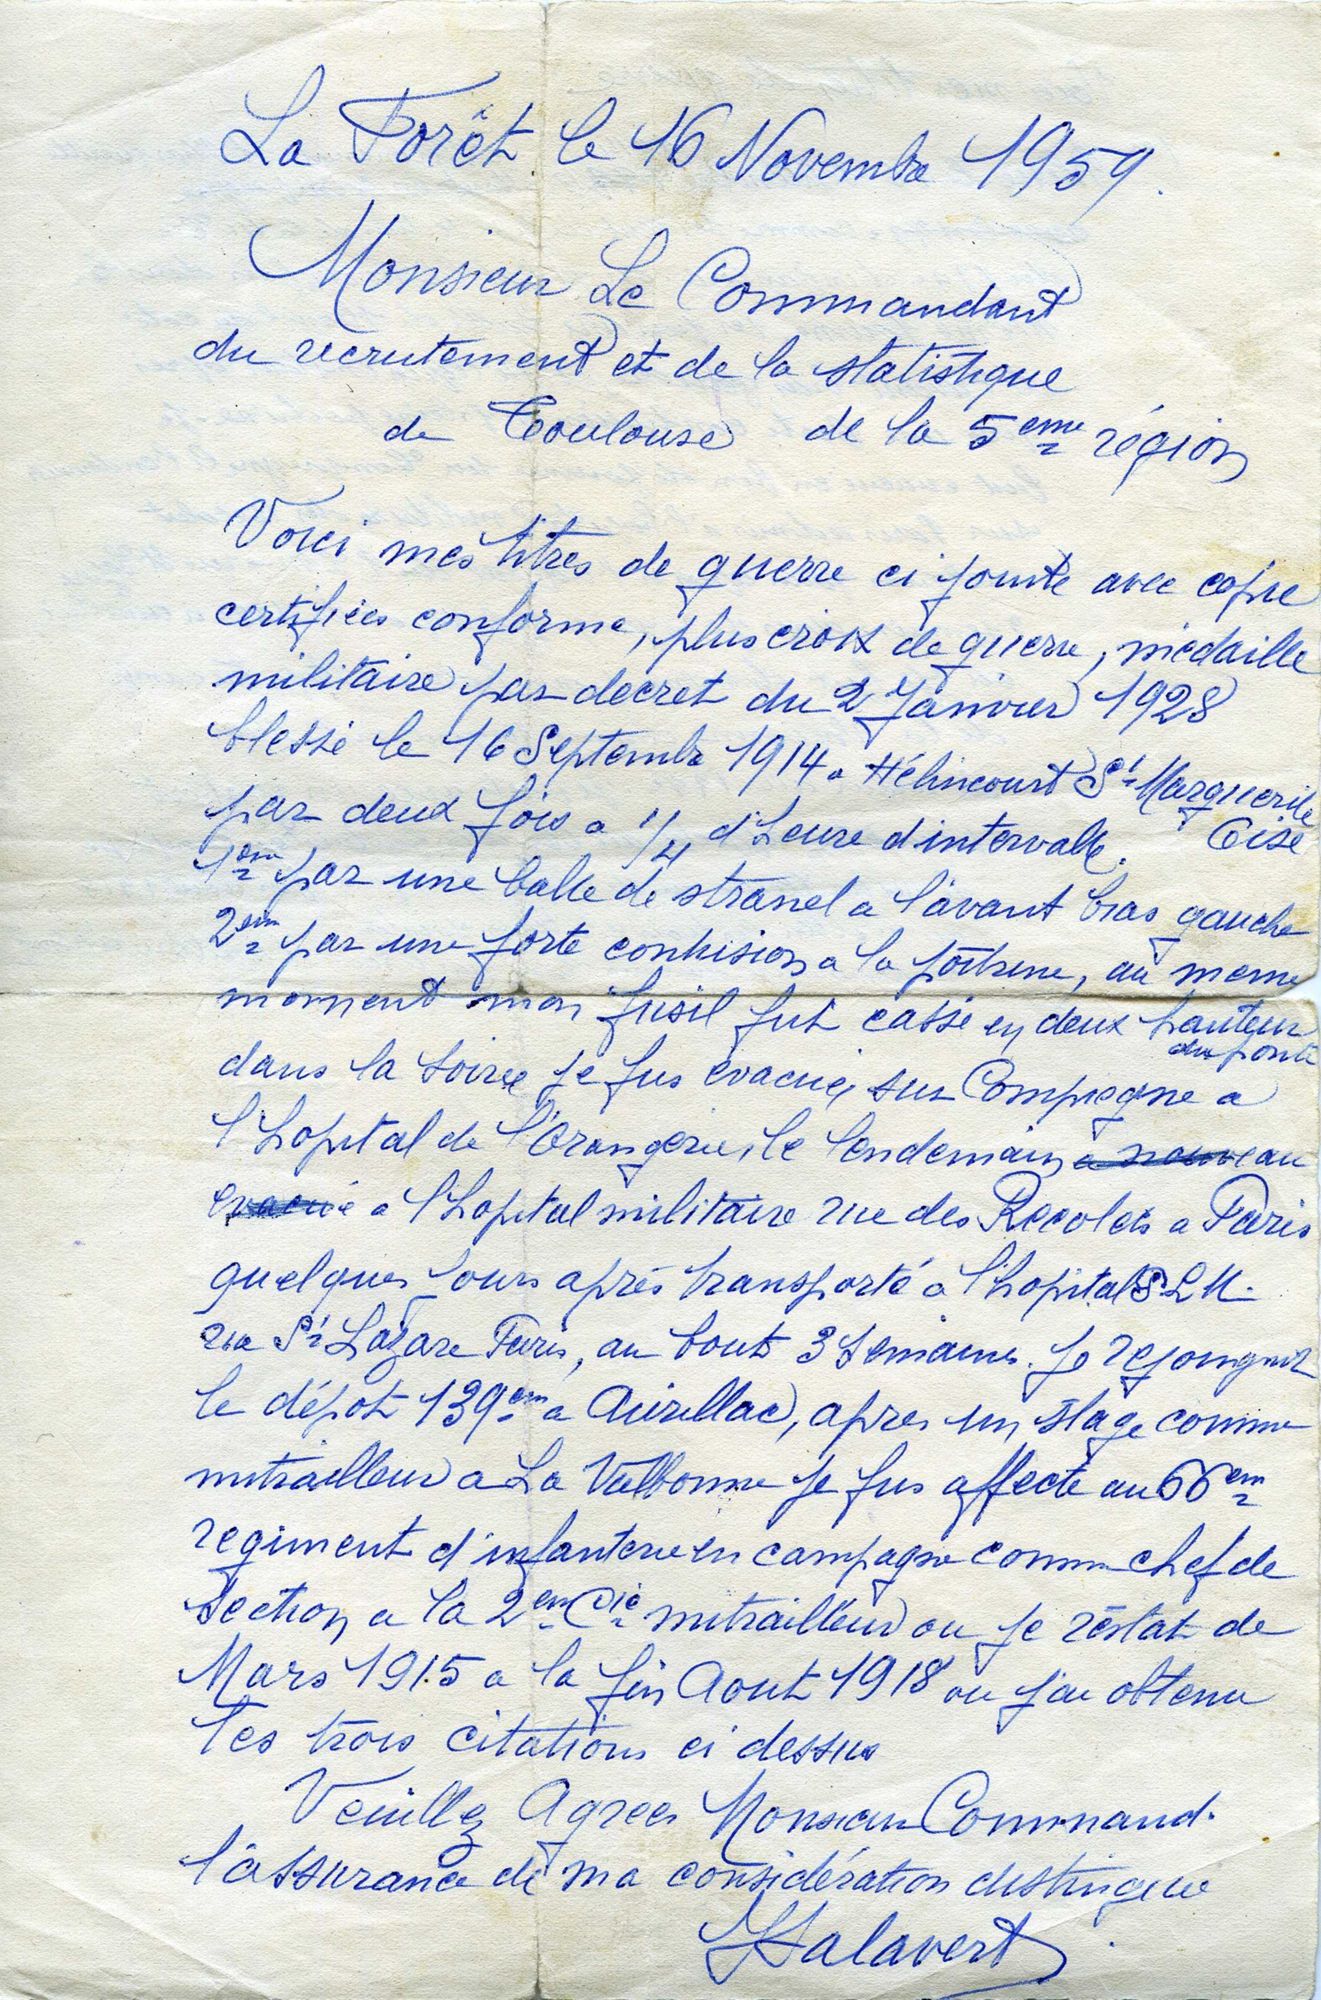 La Forêt le 16 Novembre 1959.
Monsieur Le Commandant
du recrutement et de la statistique
de Toulouse de la 5eme région
Voici mes titres de guerre ci jointe avec copie
certifiées conforme, plus croix de guerre, médaille
militaire par decret du 2 Janvier 1928
blessé le 16 Septembre 1914 a Hélincourt Ste Marguerite
Oise
par deux fois a 1/4 d'heure d'intervalle.
1em par une balle de stranel a l'avant bras gauche
2em par une forte contusion a la poitrine, au meme
moment mon fusil fut cassé en deux hauteur
du pontet
dans la soirée je fus évacué sur Compiegne a
l'hopital de l'Orangerie, le lendemain a nouveau
evacué a l'hopital militaire rue des Recolets a Paris
quelques jours aprés transporté a l'hopital P.L.M.
rue St Lazare Paris, au bout 3 semaines. je rejoingnit
le dépot 139em a Aurillac, apres un stage comme
mitrailleur a La Valbonne je fus affecté au 66em
regiment d'infanterie en campagne comme chef de
section a la 2em Cie mitrailleur ou je restat de
Mars 1915 a la fin Aout 1918 ou j'ai obtenu
les trois citations ci dessus
Veuillez Agreer Monsieur Command.
l'assurance de ma considération distinguée
Salavert